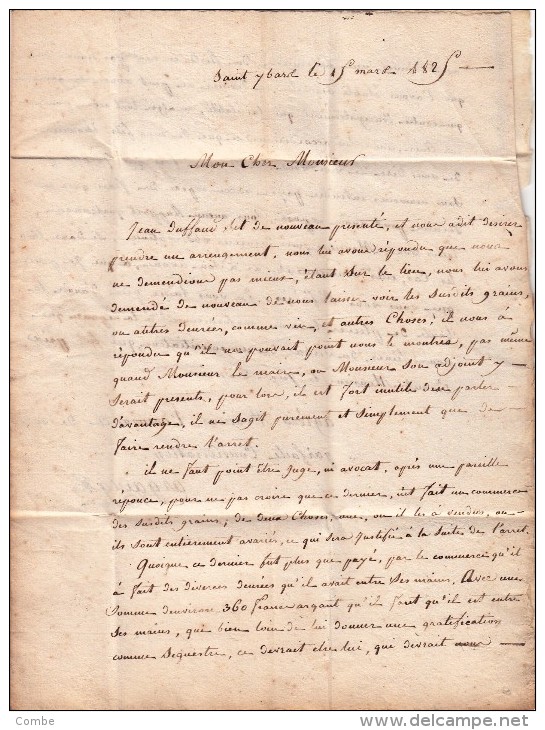 Saint ybard le 15 mars 1825
Mon Cher Monsieur
Jean duffaud, s'et de nouveau presenté, et nous adit desirer
prendre un arrengement, nous lui avons répondu que nous
ne demendions pas mieux, étant sur le lieu, nous lui avons
demendé de nouveau de nous laisser voir les susdits grains,
ou autres denrees, comme vin et autres Choses, il nous à
répondu qu'il ne pouvait point nous le montrer, pas même
quand Monsieur le maire, ou Monsieur son adjoint y
serait presents, pour lors, il est fort inutile de se parler
d'avantage, il ne sagit purement et simplement que de
faire rendre l'arret.
il ne faut point être Juge, ni avocat, après une pareille
réponce, pour ne pas croire que ce dernier, n'et fait un commerce
des susdits grains, de deux Choses une, ou il les à vendus, ou
ils sont entierement avariés, ce qui sera Justifié à la suite de l'arret.
Quoique ce dernier fut plus que payé, par le commerce qu'il
à fait des diverces denrées qu'il avait entre ses mains, Avec une
somme denviron 360 francs argant qu'il faut qu'il est entre
ses mains, que bien loin de lui donner une gratification
comme sequestre, ce devrait etre lui, qui devrait nous
Combe
www.delcampe.net